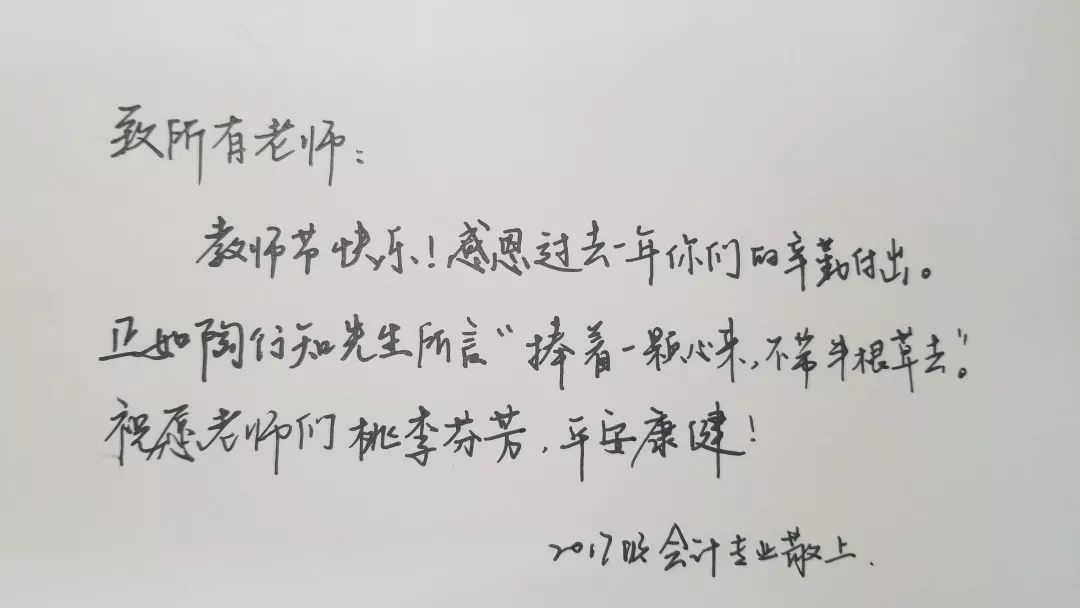 致所有老师：
教师节快乐！感恩过去一年你们的辛勤付出。
正如陶行知先生所言“捧着一颗心来，不带半根草去”。
祝愿老师们桃李芬芳，平安康健！
2017级会计专业敬上.